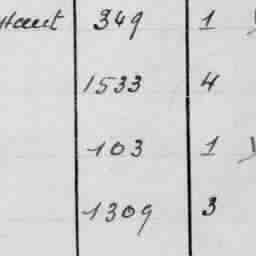 349 1
1533 4
103 1
1309 3